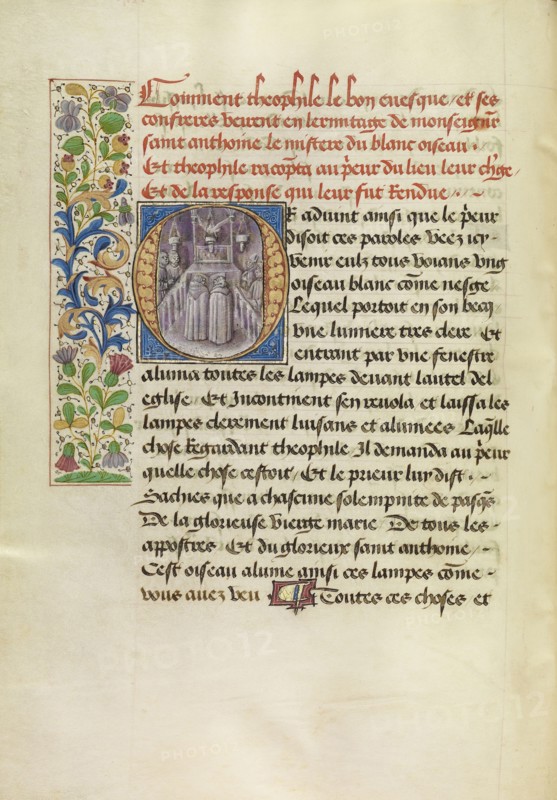 Comment theophile le bon euesque / et ses
confreres veirent en lermitage de monseignr
saint anthoine le mistere du blanc oiseau .
Et theophile racopta au p̄eur du lieu leur ch̄ge /
Et de la response qui leur fut Rendue . .
OR aduint ainsi que le p̄eur
disoit ces paroles veez icy -
venir eulz tous voians vng
oiseau blanc cōme neige
Lequel portoit en son becq
vne lumiere tres clere Et
entrant par vne fenestre
aluma toutes les lampes deuant lautel del
eglise / Et Incontinent sen reuola et laissa les
lampes clerement luisans et alumees Laq̄lle
chose Regardant theophile Il demanda au p̄eur
quelle chose cestoit / Et le prieur luy dist . .
Sachies que a chascune solempnite de pasq̄s
De la glorieuse vierge marie De tous les -
appostres Et du glorieux saint anthoine / -
Cest oiseau alume ainsi ces lampes cōme -
vous auez veu . Toutes ces choses et
PHOTO12